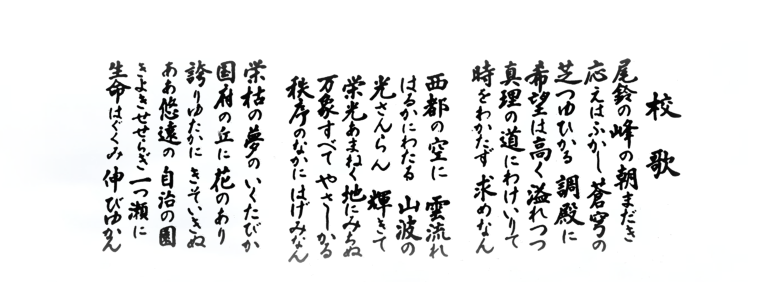 校歌
尾鈴の峰の朝まだき
応えはふかし 蒼穹の
芝つゆひかる 調殿に
希望は高く溢れつつ
真理の道にわけいりて
時をわかたず 求めなん
西都の空に 雲流れ
はるかにわたる 山波の
光さんらん 輝きて
栄光あまねく地にみちぬ
万象すべて やさしかる
秩序のなかに はげみなん
栄枯の夢の いくたびか
国府の丘に 花のあり
誇りゆたかに きそいきぬ
ああ悠遠の 自治の園
きよきせせらぎ一つ瀬に
生命はぐくみ 伸びゆかん